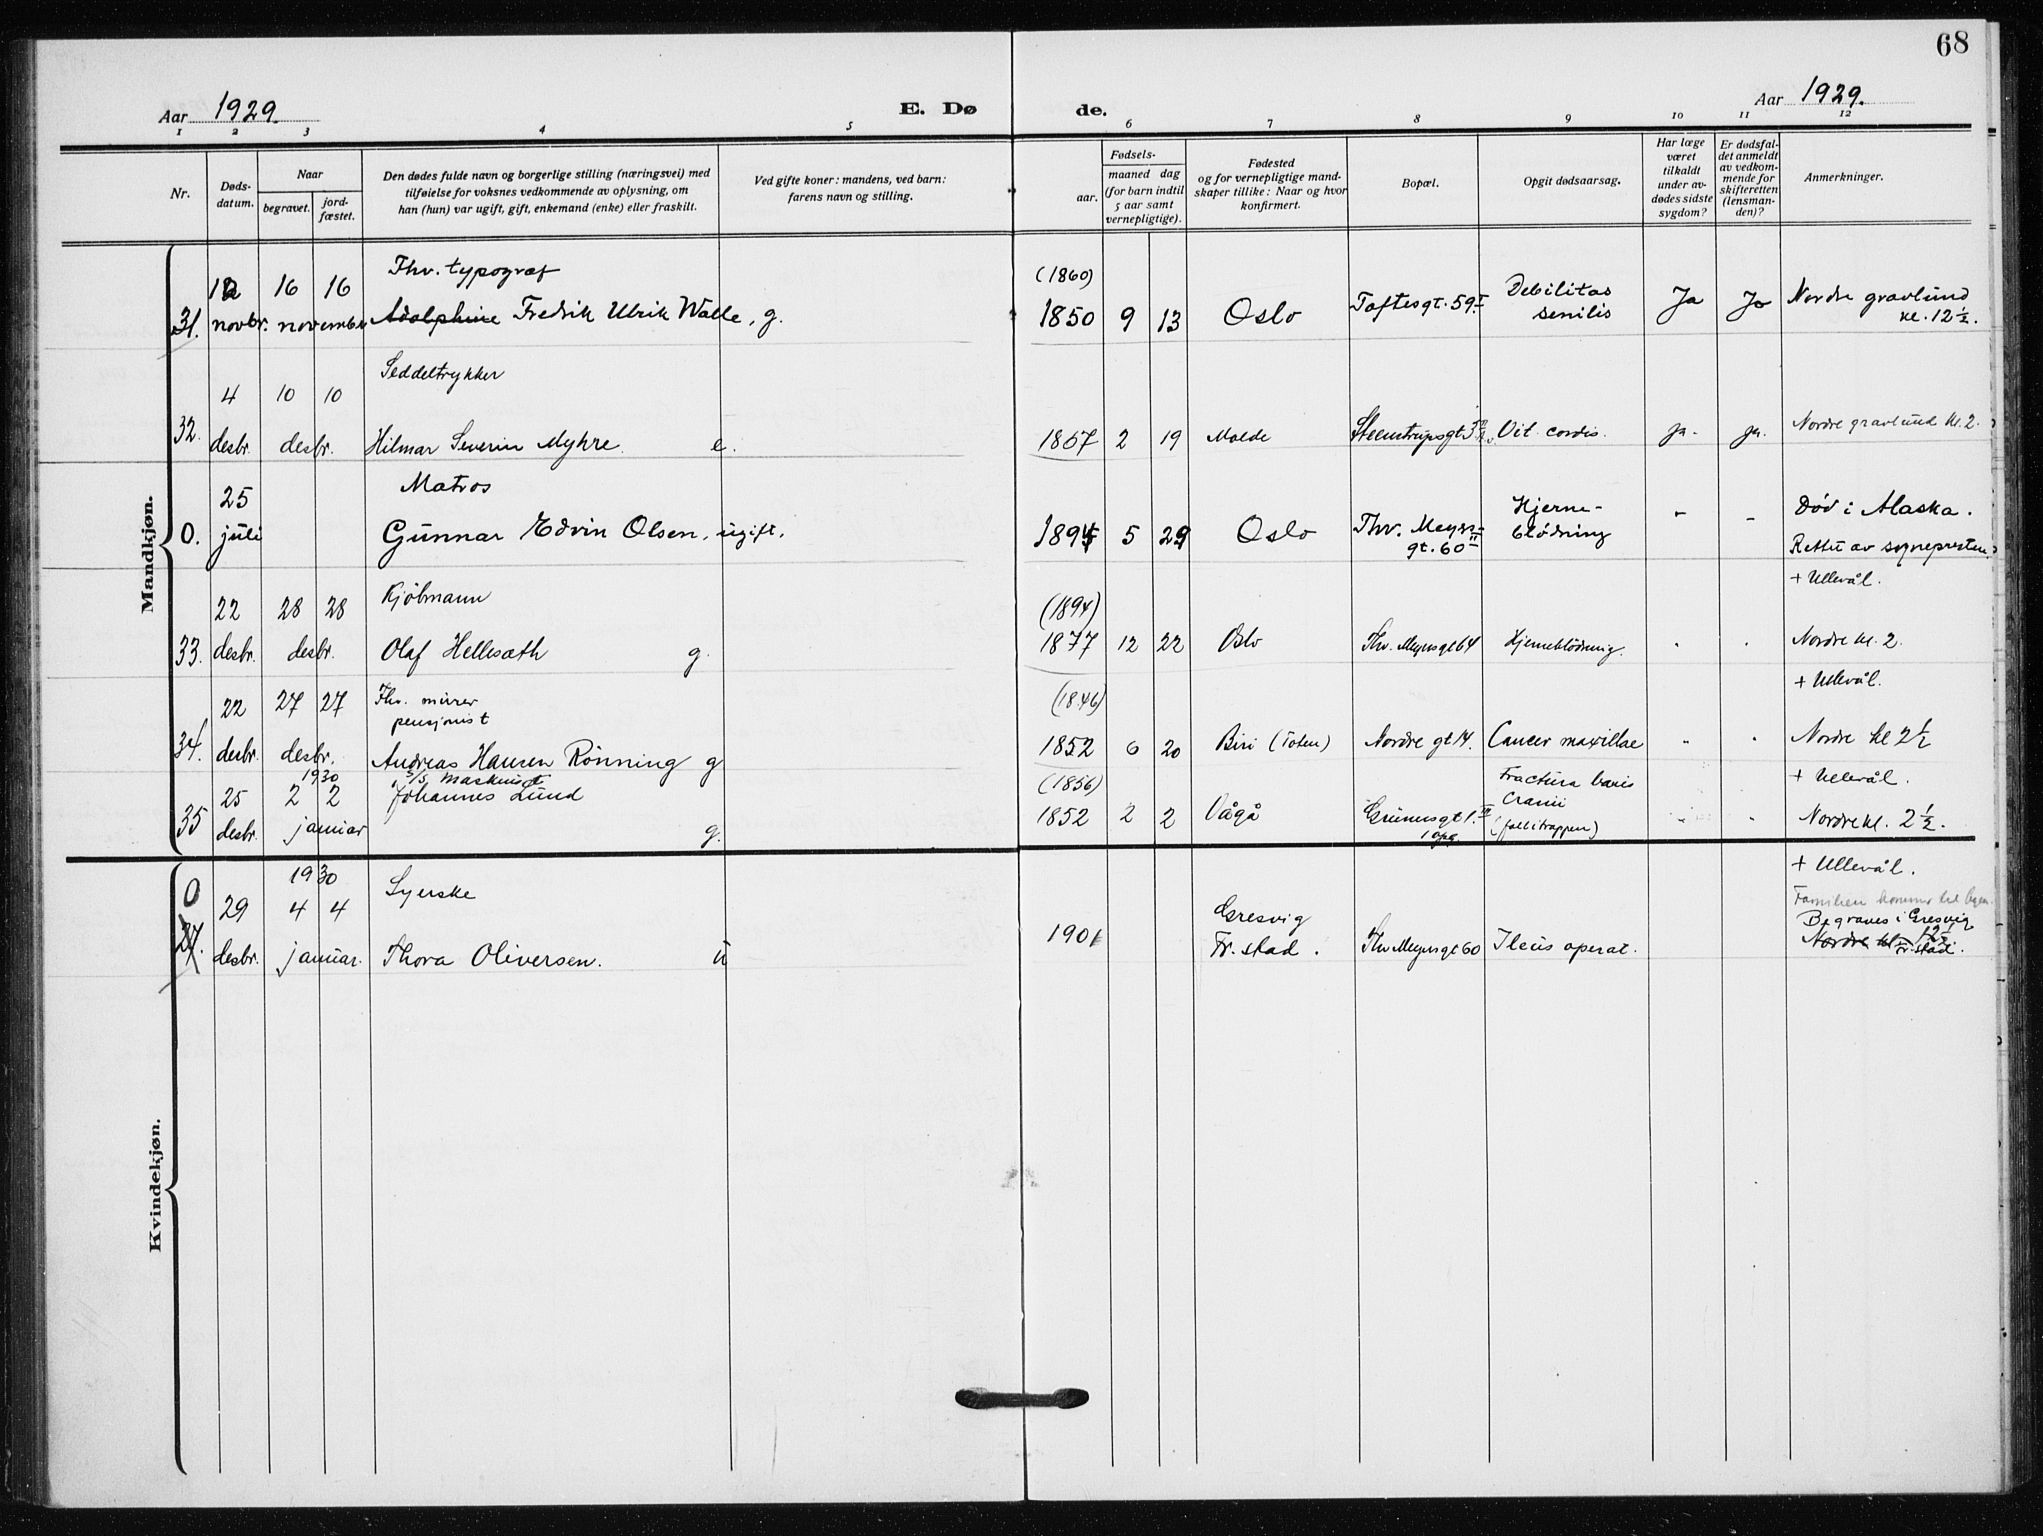 68
Aar 1929. E. Døde. Aar 1929.
1 2 3 4 5 6 7 8 9 10 11 12
Nr.
Døds-
datum.
Naar
begravet.
jord-
fæstet.
Den dødes fulde navn og borgerlige stilling (næringsvei) med
tilføielse for voksnes vedkommende av oplysning, om
han (hun) var ugift, gift, enkemand (enke) eller fraskilt.
Ved gifte koner: mandens, ved barn:
farens navn og stilling.
Fødsels-
aar.
maaned dag
(for barn indtil
5 aar samt
vernepligtige).
Fødested
og for vernepligtige mand-
skaper tillike: Naar og hvor
konfirmert.
Bopæl.
Opgit dødsaarsag.
Har læge
været
tilkaldt
under av-
dødes sidste
sygdom?
Er dødsfal-
det anmeldt
av vedkom-
mende for
skifteretten
(lensman-
den)?
Anmerkninger.
Mandkjøn.
Fhv. typograf (1860)
12 16 16 Debilitas Ja Ja Nordre gravlund
31. novbr. november Adolphine Fredrik Ulrik Walle, g. 1850 9 13 Oslo Toftesgt. 59 I senilis kl. 12 ½.
Seddeltrykker
4 10 10
32. desbr. desbr. Hilmar Severin Myhre. e. 1867 2 19 Molde Steenstrupsgt Vit. cordis. ja. ja. Nordre gravlund kl. 2.
25 Matros Hjerne-
0. juli Gunnar Edvin Olsen, ugift. 1894 5 29 Oslo Thv. Meyers blödning - - Död i Alaska.
gt. 60 II Rettet av sogneprestem
22 28 28 Kjöbmann (1894) + Ullevål.
33. desbr. desbr. Olaf Hellesæth g. 1877 12 22 Oslo Thv. Meyersgt 64 Hjerneblödning. Nordre kl. 2.
22 27 27 Fhv. murer (1846) + Ullevål.
pensjonist
34. desbr. desbr. Andreas Hansen Rönning g 1852 6 20 Biri (Toten) Nordre gt 14. Cancer maxillae Nordre kl 2 ½
1930 S/S Maskinist (1856) Fractura basis + Ullevål.
25 2 2 Johannes Lund cranii
35 desbr. januar g. 1852 2 2 Vågå Grünersgt 1. II (fall i trappen) Nordre kl. 2 ½.
1 opg.
Kvindekjøn.
0 1930 Syerske + Ullevål.
29 4 4 Gresvig Familien kommer til
Begraves i Gresvig
27. desbr. januar. Thora Oliversen. u 1901 Fr. stad. Thv Meyersgt 60 Ileus operat. Nordre kl. 12 ½
Fr.stad.